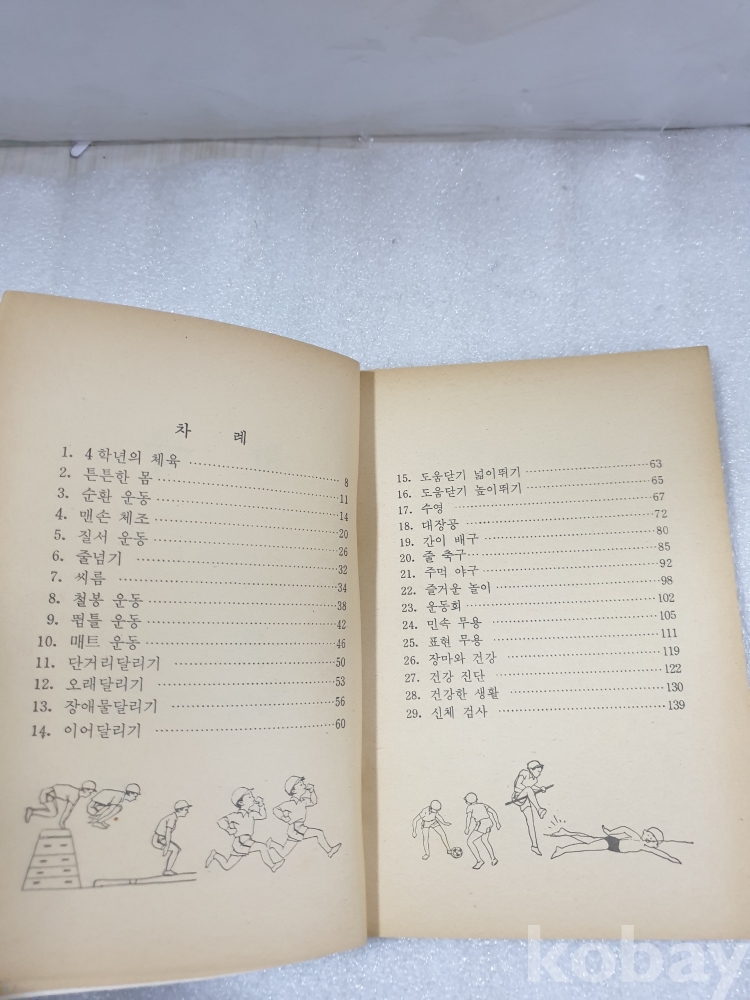 차 례
1. 4학년의 체육 8
2. 튼튼한 몸 11
3. 순환 운동 14
4. 맨손 체조 20
5. 질서 운동 26
6. 줄넘기 32
7. 씨름 34
8. 철봉 운동 38
9. 뜀틀 운동 42
10. 매트 운동 46
11. 단거리달리기 50
12. 오래달리기 53
13. 장애물달리기 56
14. 이어달리기 60
15. 도움닫기 넓이뛰기 63
16. 도움닫기 높이뛰기 65
17. 수영 67
18. 대장공 72
19. 간이 배구 80
20. 줄 축구 85
21. 주먹 야구 92
22. 즐거운 놀이 98
23. 운동회 102
24. 민속 무용 105
25. 표현 무용 111
26. 장마와 건강 119
27. 건강 진단 122
28. 건강한 생활 130
29. 신체 검사 139
kobay